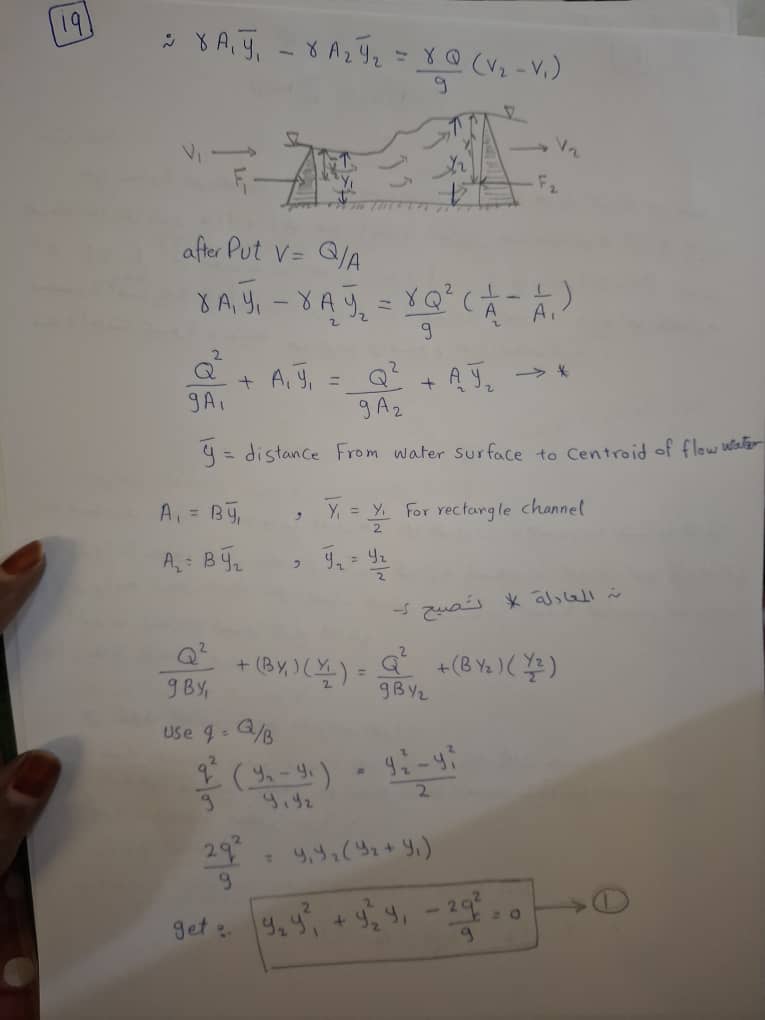 19
∴ γ A₁ ȳ₁ - γ A₂ ȳ₂ = γQ/g (V₂ - V₁)
V₁ F₁ y₁ y₂ V₂ F₂
after Put V = Q/A
γ A₁ ȳ₁ - γ A₂ ȳ₂ = γQ²/g (1/A₂ - 1/A₁)
Q²/gA₁ + A₁ ȳ₁ = Q²/gA₂ + A₂ ȳ₂ → *
ȳ = distance From water surface to centroid of flow water
A₁ = Bȳ₁ , ȳ₁ = y₁/2 For rectangle channel
A₂ = Bȳ₂ , ȳ₂ = y₂/2
∴ المعادلة * تصبح
Q²/gBy₁ + (By₁)(y₁/2) = Q²/gBy₂ + (By₂)(y₂/2)
use q = Q/B
q²/g (y₂ - y₁/y₁y₂) = y₂² - y₁²/2
2q²/g = y₁y₂(y₂ + y₁)
get ∴ y₂y₁² + y₂²y₁ - 2q²/g = 0 → ①